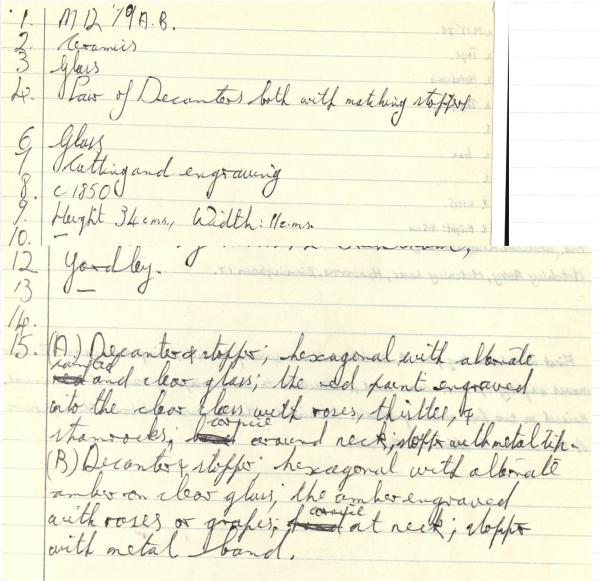 1. M D2 '79 A.B.
2. Ceramics
3 Glass
4. Pair of Decanters both with matching stoppers
6 Glass
7 Cutting and engraving
8. c.1850
9. Height 34 cms., Width: 11c.ms.
10. —
12 Yardley.
13 —
14.
15. (A) Decanter & stopper; hexagonal with alternate
painted and clear glass; the red paint engraved
into the clear glass with roses, thistles, &
shamrocks; cornice around neck; stopper with metal tip.
(B) Decanter & stopper: hexagonal with alternate
amber on clear glass; the amber engraved
with roses or grapes; cornice at neck; stopper
with metal band.